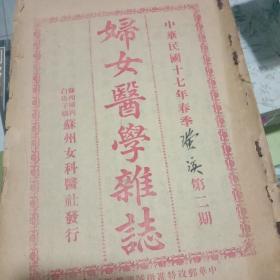 中華民國十七年春季
第二期
婦女醫學雜誌
蘇州城內
白塔子橋
蘇州女科醫社發行
中華郵政特准掛號